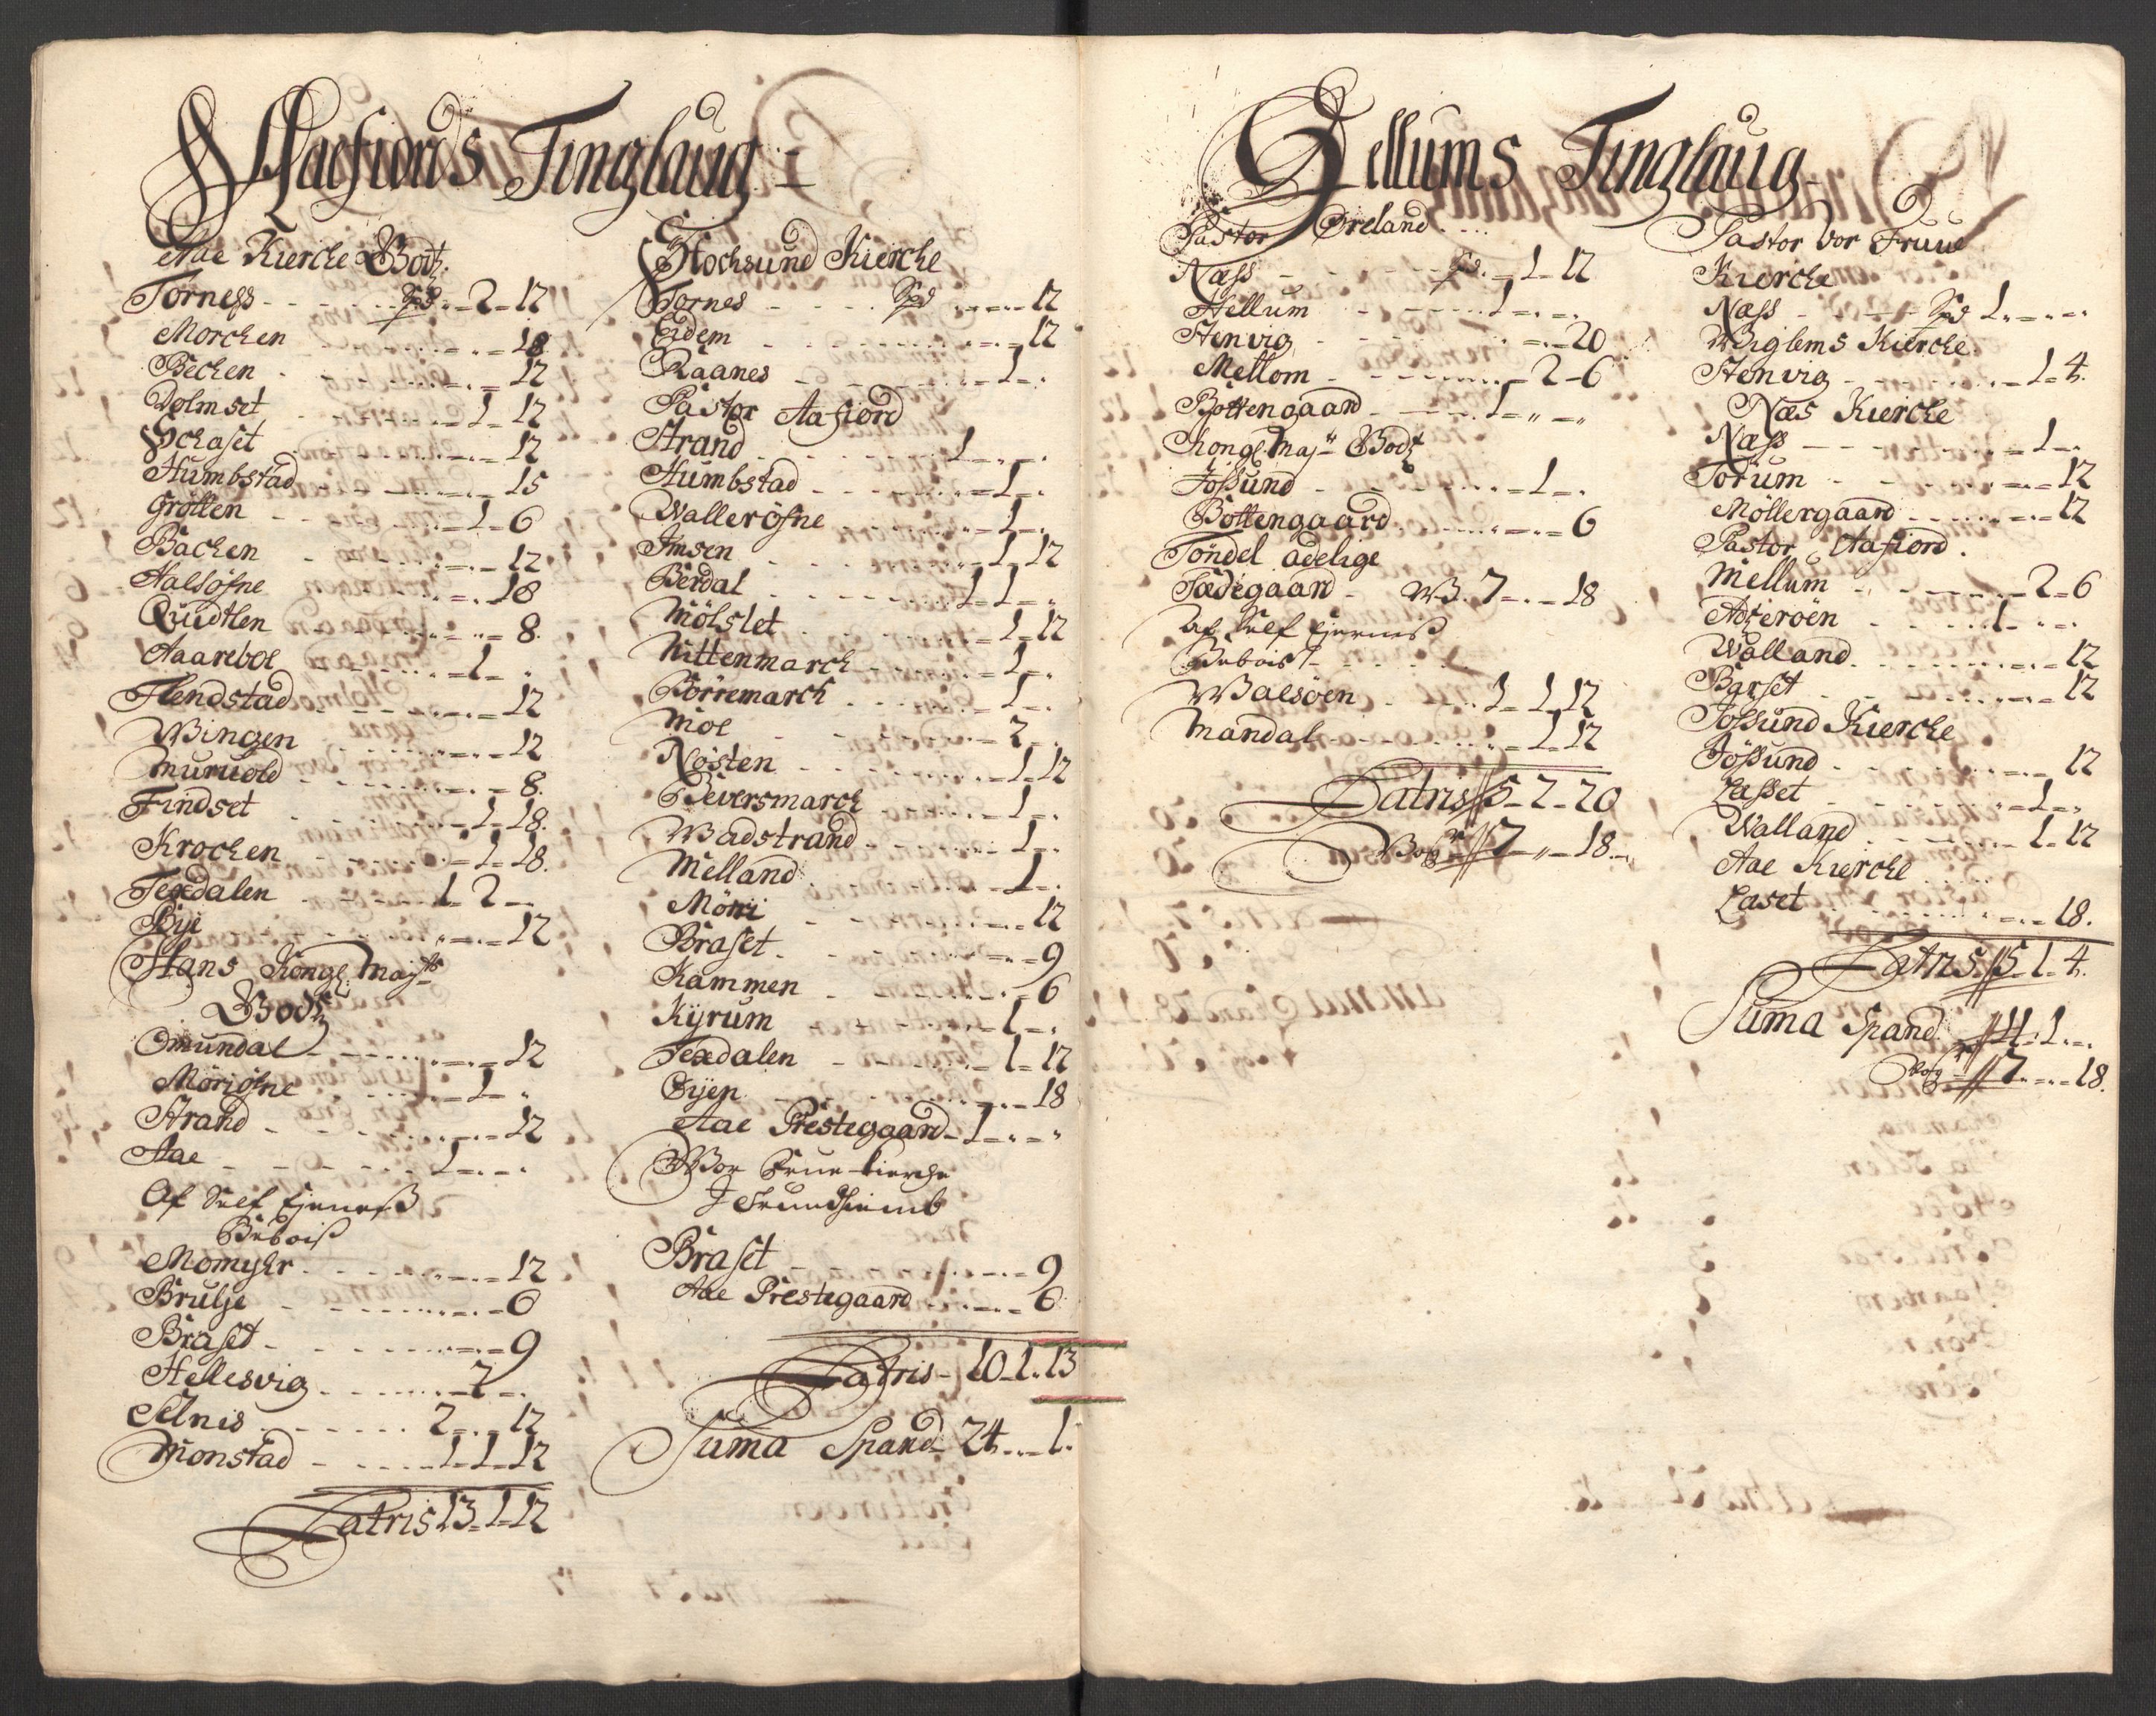 Aaefiords Tinglaug
Aae Kierche Bodz
Torness - - - Spd - 2 - 12
Morchen - - - 18
Bechen - - - 12
Dolmset - - - 1 - 12
Schaset - - - 12
Humbstad - - - 15
Grötten - - - 1 - 6
Bachen - - - 12
Aalsöfne - - - 18
Quedtlen - - - 8.
Aaareboe - - - 1 - "
Flendstad - - - 12
Wingen - - - 12
Muruold - - - 8.
Findset - - - 1 - 18.
Krochen - - - 1 - 18.
Texdalen - - - 1 - 2 - -
Bye - - - 12
Hans Kongl: Mayts
Bodz
Omundal - - - 12
Möriofne - - - 1 - "
Strand - - - 12
Aae - - - 1 - - -
Af Self Ejeness
Bebois
Momyhr - - - 12
Brulje - - - 6
Braset - - - 9
Hellesvig - - - 2 - -
Selnis - - - 2 - - 12
Monstad - - - 1 - 1 - 12
Latris 13 - 1 - 12
Stochsund Kierche
Tornes - - - Spd - - - 12
Eidem - - - 12
Raanes - - - 1 - -
Pastor Aafiord
Strand - - - 1 - - -
Humbstad - - - 1 - -
Walleröfne - - - 1 - -
Imsen - - - 1 - 12
Berdal - - - 1 - 1 - "
Mölslet - - - 1 - 12
Nittenmarch - - - 1 - -
Börremarch - - - 1 - -
Moe - - - 2 - -
Nösten - - - 1 - 12
Beversmarch - - - 1 - -
Wadstrand - - - 1 - -
Melland - - - 1 - -
Mörri - - - 12
Braset - - - 9
Kammen - - - 6
Kyrum - - - 1 - -
Texdalen - - - 1 - 12
Öyen - - - 18
Aae Prestegaard - 1 - " - "
Wor Frue kierche
I Trundhiemb
Braset - - - 9
Aae Prestegaard - - - 6
Latris - 10 - 1 - 13
Suma Spand 24 - - 1 -
Jellums Tinglaug
Pastor Öreland
Næss - - - Sp - 1 - 12
Hellum - - - 1 - - -
Stenvig - - - 20
Mellom - - - 2 - 6
Bottengaard - - - 1 - " - "
Kongl May: Bodz
Jössund - - - 1 - -
Bottengaard - - - 6
Töndel adelige
Sædegaard - W 7 - - 18
Af Self Ejerness
Bebois - - -
Walsöen - - - 1 - 1 - 12
Mandal - - - 1 - 12
Latris 5 - 2 - 20
Wog 7 - " - 18.
Pastor Vor Fruue
Kierche
Næss - - - Spd 1 - - -
Wiglems Kierche
Stenvig - - - 1 - 4.
Næs Kierche
Næss - - - 1 - -
Torum - - - 12
Möllergaard - - - 12
Pastor Aafiord.
Mellum - - - 2 - 6
Adseröen - - - 1 - - -
Walland - - - 12
Barset - - - 12
Jossund Kierche
Jössund - - - 12
Lasset - - - 1 - -
Walland - - - 1 - 12
Aae Kierche
Laset - - - 18.
Latris 5 - 1 - 4.
Suma Spand 11 - 1 - -
Wog 7 - - 18.